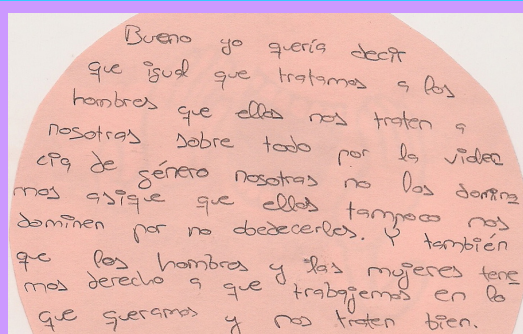 Bueno yo quería decir
que igual que tratamos a los
hombres que ellos nos traten a
nosotras sobre todo por la violen
cia de género nosotras no los domina
mos asique que ellos tampoco nos
dominen por no obedecerles. Y también
que los hombres y las mujeres tene
mos derecho a que trabajemos en lo
que queramos y nos traten bien.